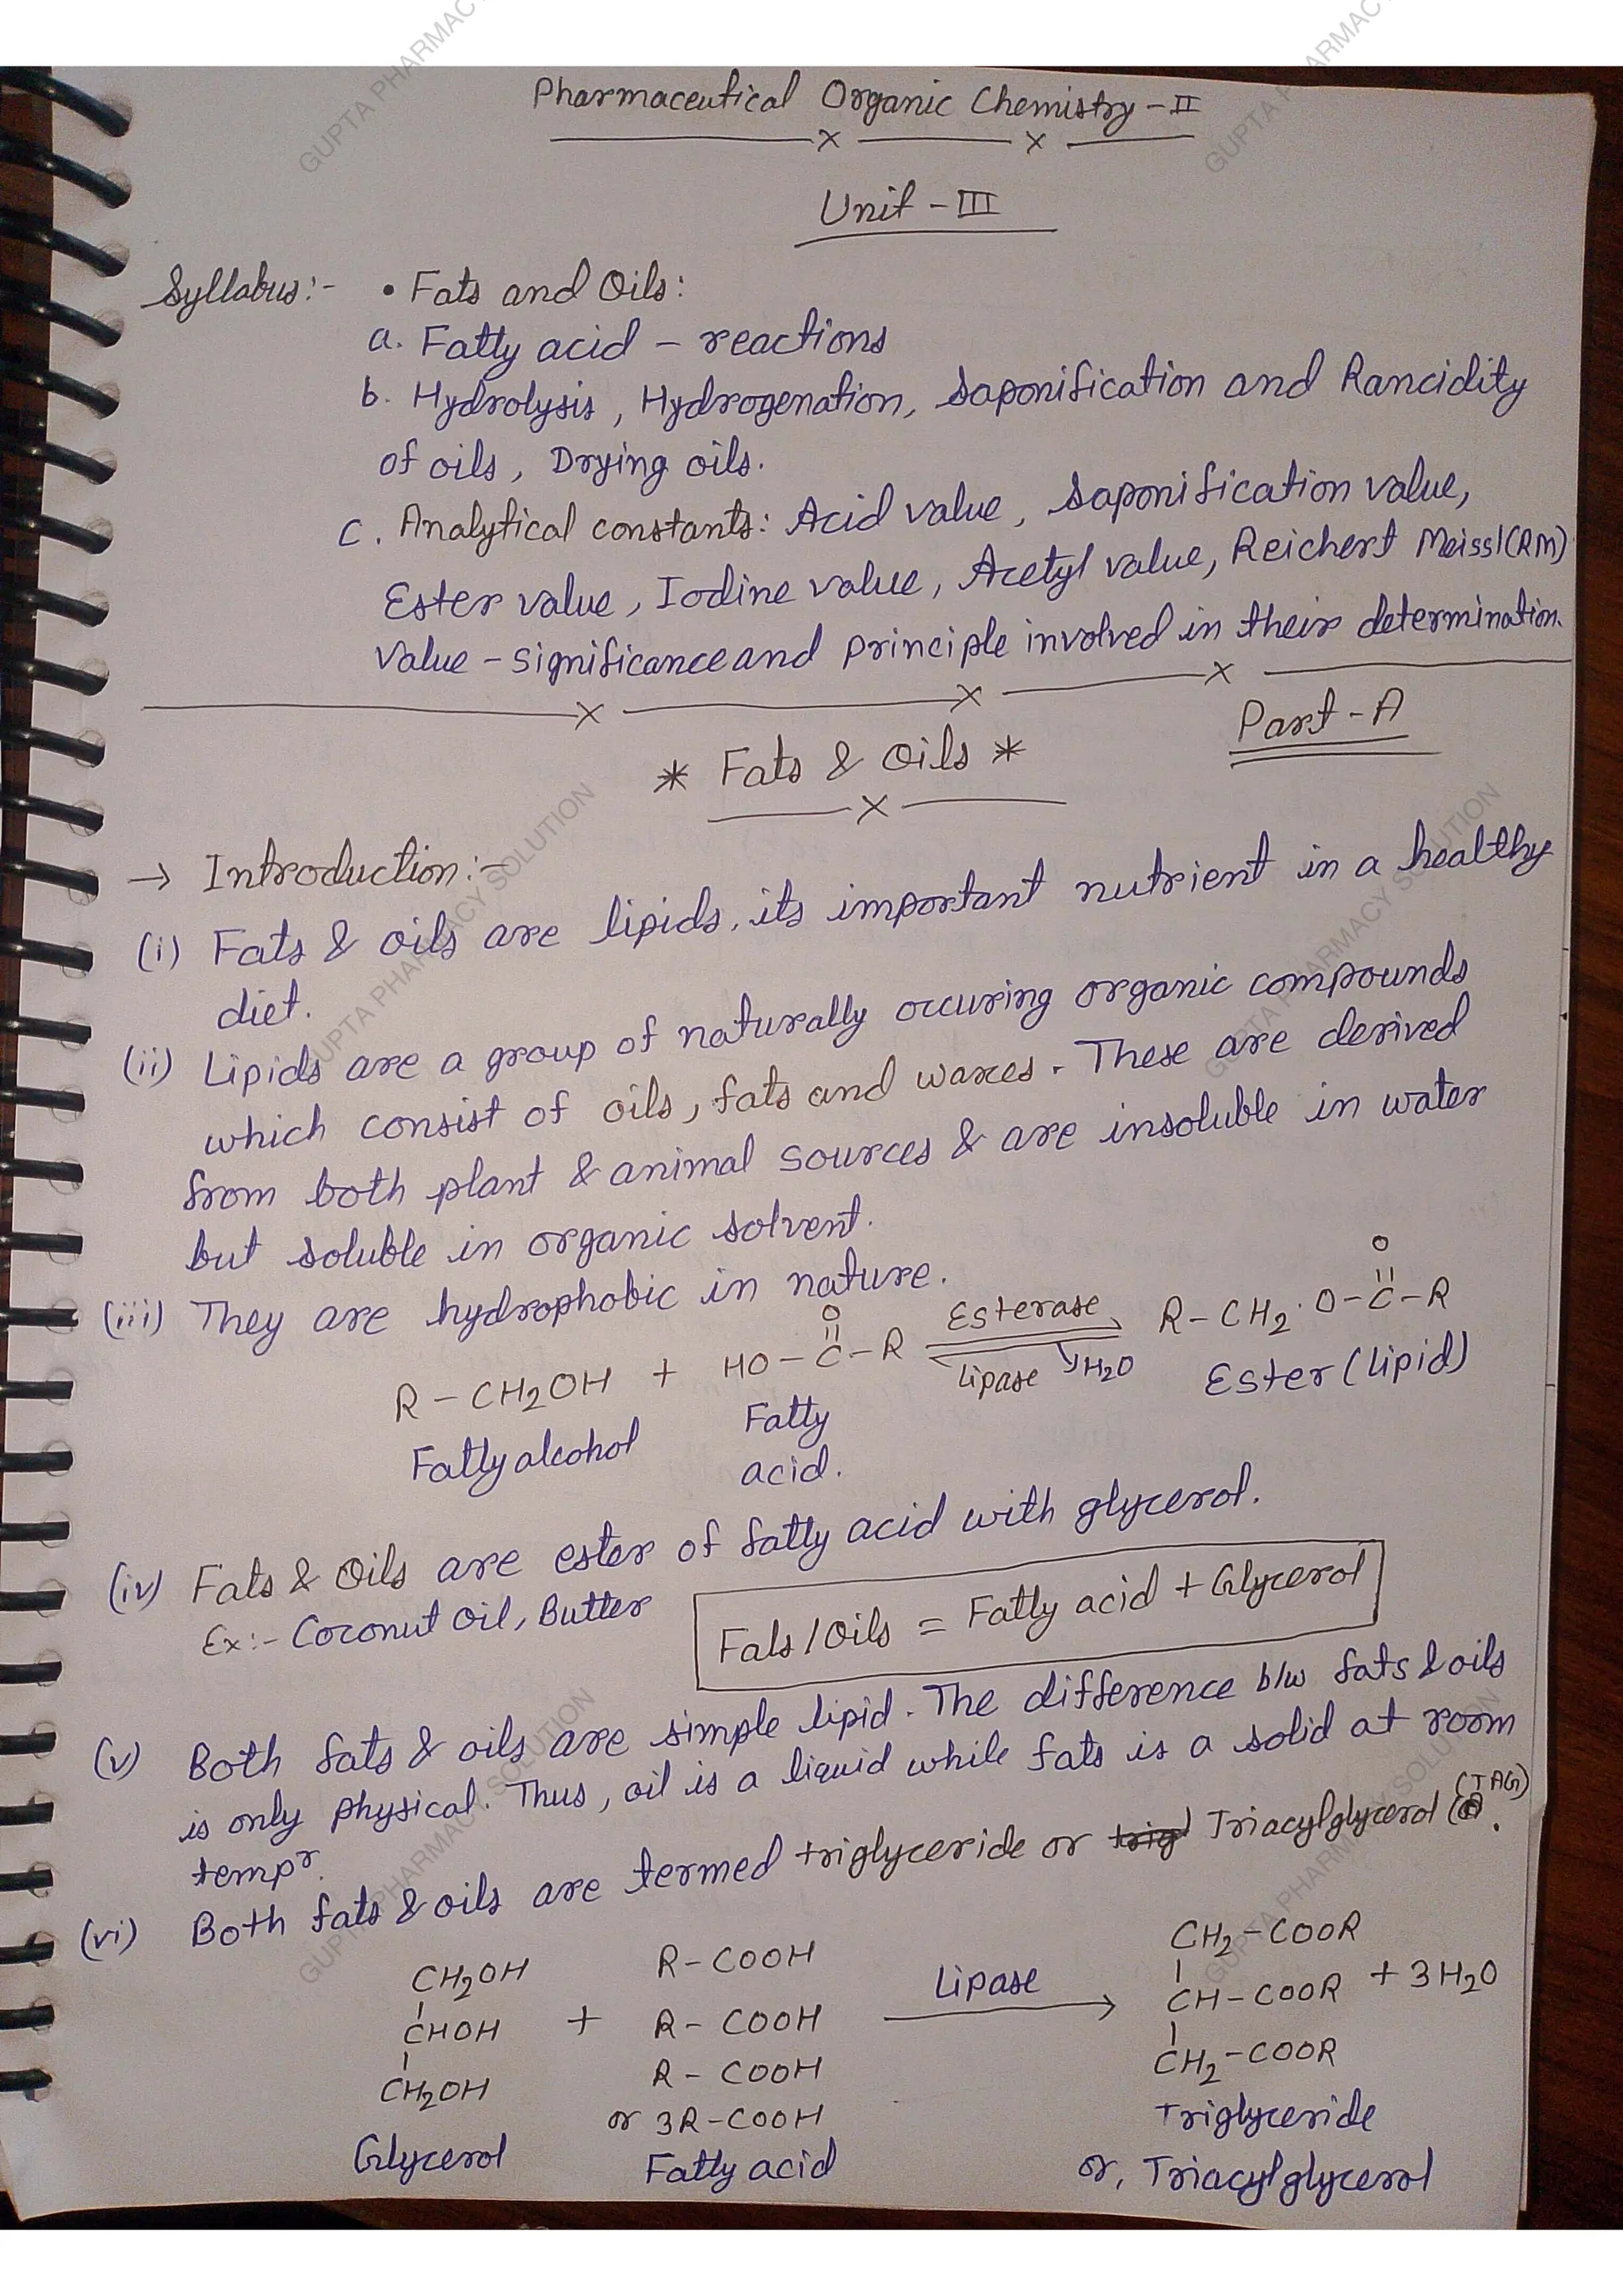 Pharmaceutical Organic Chemistry - II
Unit - III
Syllabus:- • Fats and Oils:
a. Fatty acid - reactions
b. Hydrolysis, Hydrogenation, Saponification and Rancidity
of oils, Drying oils.
c. Analytical constants: Acid value, Saponification value,
Ester value, Iodine value, Acetyl value, Reichert Meissl (RM)
value - significance and principle involved in their determination.
Part - A
* Fats & Oils *
→ Introduction:-
(i) Fats & oils are lipids, its important nutrient in a healthy
diet.
(ii) Lipids are a group of naturally occuring organic compounds
which consist of oils, fats and waxes. These are derived
from both plant & animal sources & are insoluble in water
but soluble in organic solvent.
(iii) They are hydrophobic in nature.
O O
R - CH2OH + HO - C - R Esterase Lipase H2O R - CH2 . O - C - R
Fatty alcohol Fatty Ester (lipid)
acid.
(iv) Fats & Oils are ester of fatty acid with glycerol.
Ex:- Coconut oil, Butter
Fats / Oils = Fatty acid + Glycerol
(v) Both fats & oils are simple lipid. The difference b/w fats & oils
is only physical. Thus, oil is a liquid while fats is a solid at room
tempr.
(vi) Both fats & oils are termed triglyceride or Triacylglycerol (TAG).
CH2OH R - COOH Lipase CH2 - COOR
CHOH + R - COOH → CH - COOR + 3H2O
CH2OH R - COOH CH2 - COOR
or 3R - COOH Triglyceride
Glycerol Fatty acid or, Triacylglycerol
GUPTA PHARMACY SOLUTION